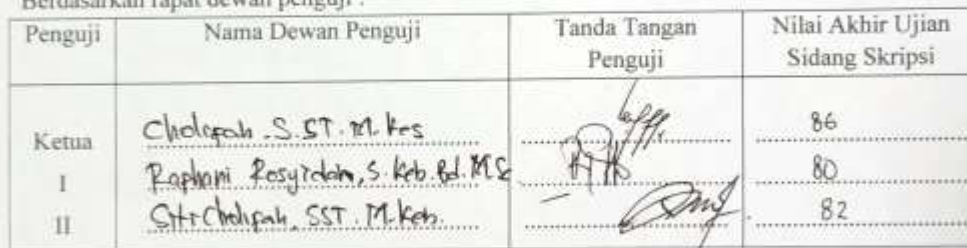 Berdasarkan rapat dewan penguji :
Penguji Nama Dewan Penguji Tanda Tangan Penguji Nilai Akhir Ujian Sidang Skripsi
Ketua Cholifah .S.ST. M.Kes 86
I Rosyidah, S.Keb.Bd. 80
II Siti Cholifah, SST. M.Keb. 82